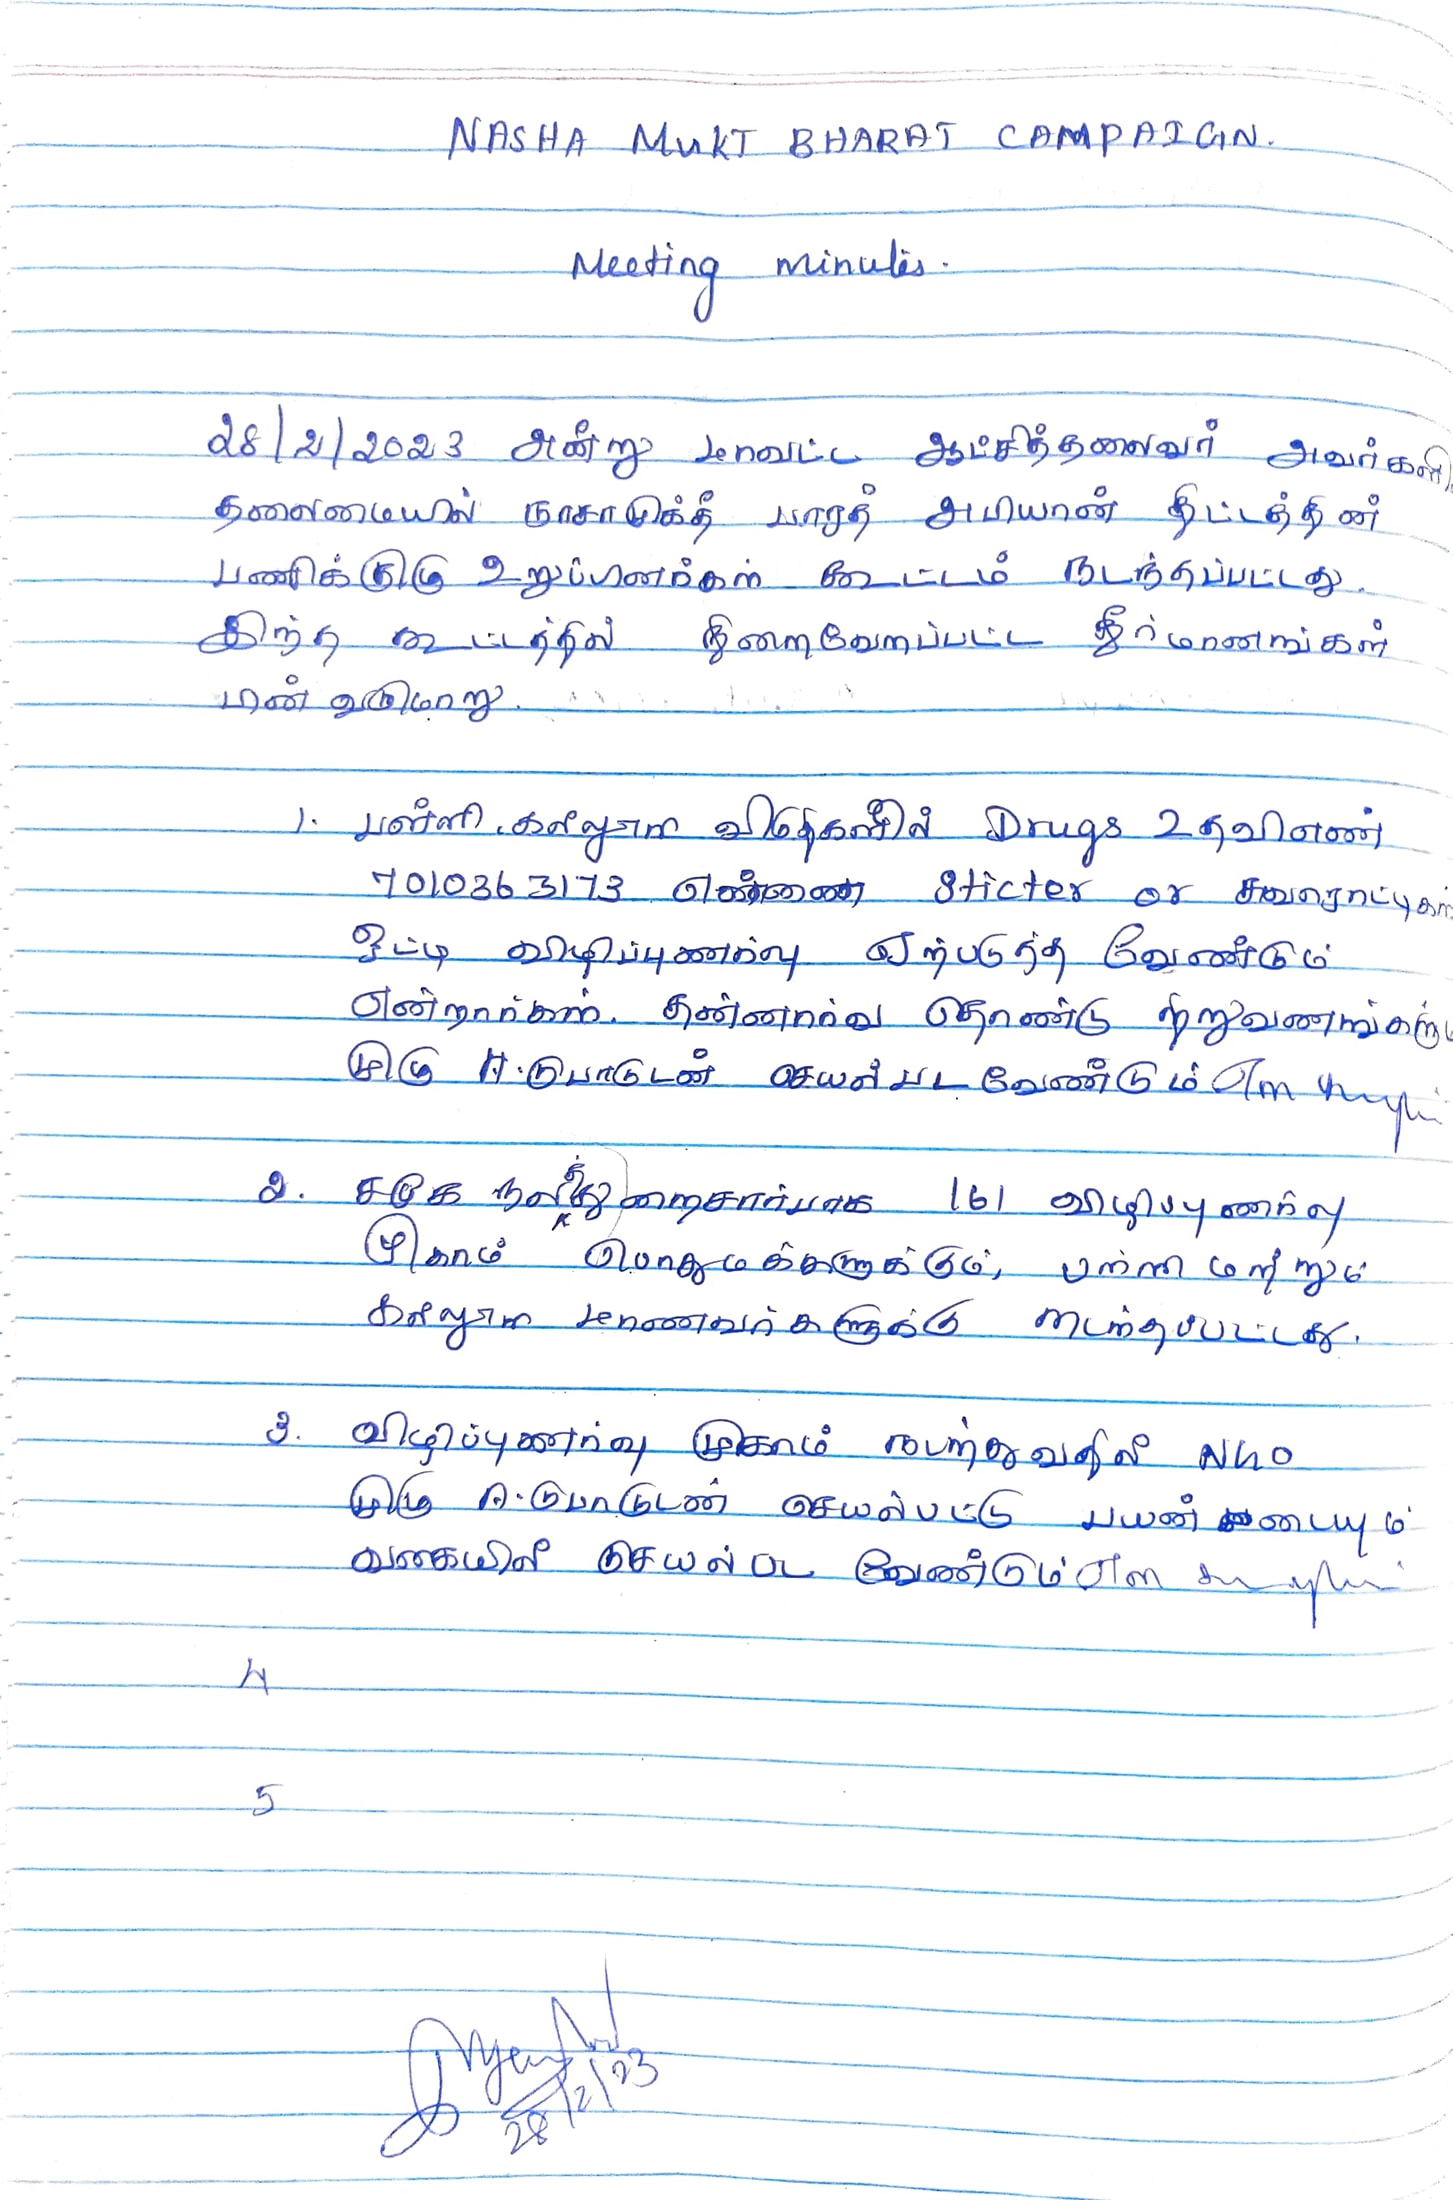 NASHA MUKT BHARAT CAMPAIGN.
Meeting minutes.
28/2/2023 அன்று மாவட்ட ஆட்சித்தலைவர் அவர்களி
தலைமையில் நாசாமுக்த் பாரத் அபியான் திட்டத்தின்
பணிக்குழு உறுப்பினர்கள் கூட்டம் நடந்தப்பட்டது.
இந்த கூட்டத்தில் நிறைவேறப்பட்ட தீர்மானங்கள்
பின் வருமாறு.
1. பள்ளி, கல்லூரி விடுதிகளில் Drugs உதவிஎண்
7010363173 எண்ணை Sticter or சுவரொட்டிகள்
ஒட்டி விழிப்புணர்வு ஏற்படுத்த வேண்டும்
என்றார்கள். தன்னார்வ தொண்டு நிறுவனங்களும்
முழு ஈடுபாடுடன் செயல்பட வேண்டும் என
2. சமூக நலத்துறைசார்பாக 161 விழிப்புணர்வு
முகாம் பொதுமக்களுக்கும், பள்ளி மற்றும்
கல்லூரி மாணவர்களுக்கு நடைந்தப்பட்டது.
3. விழிப்புணர்வு முகாம் நடைந்துவதில் NGO
முழு ஈடுபாடுடன் செயல்பட்டு பயன் அடையும்
வகையில் செயல்பட வேண்டும் என
4
5
28/2/23